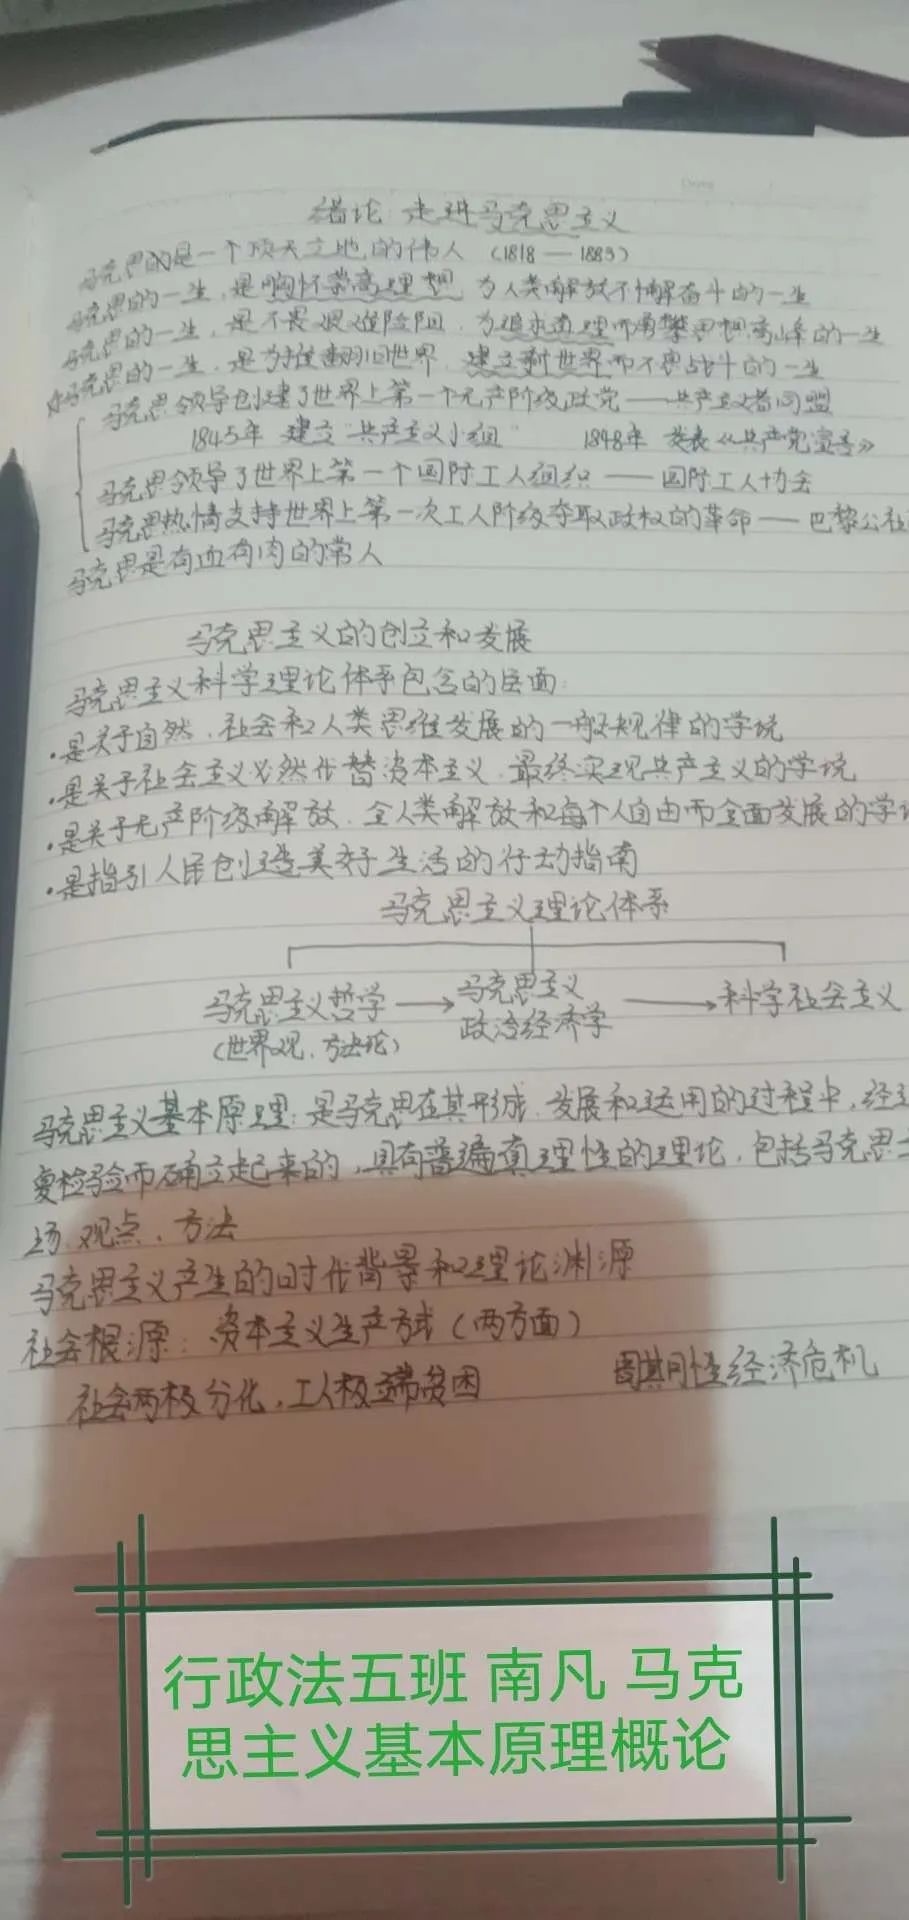 绪论 走进马克思主义
马克思的是一个顶天立地的伟人 (1818—1883)
马克思的一生，是胸怀崇高理想，为人类解放不懈奋斗的一生
马克思的一生，是不畏艰难险阻，为追求真理而勇攀思想高峰的一生
马克思的一生，是为推翻旧世界，建立新世界而不畏战斗的一生
马克思领导创建了世界上第一个无产阶级政党——共产主义者同盟
1845年 建立"共产主义小组" 1848年 发表《共产党宣言》
马克思领导了世界上第一个国际工人组织——国际工人协会
马克思热情支持世界上第一次工人阶级夺取政权的革命——巴黎公社
马克思是有血有肉的常人
马克思主义的创立和发展
马克思主义科学理论体系包含的层面：
·是关于自然、社会和人类思维发展的一般规律的学说
·是关于社会主义必然代替资本主义、最终实现共产主义的学说
·是关于无产阶级解放、全人类解放和每个人自由而全面发展的学
·是指引人民创造美好生活的行动指南
马克思主义理论体系
马克思主义哲学 → 马克思主义 → 科学社会主义
(世界观、方法论) 政治经济学
马克思主义基本原理：是马克思在其形成、发展和运用的过程中，经
复检验而确立起来的，具有普遍真理性的理论，包括马克思
场、观点、方法
马克思主义产生的时代背景和理论渊源
社会根源：资本主义生产方式（两方面）
社会两极分化，工人极端贫困 周期性经济危机
行政法五班 南凡 马克
思主义基本原理概论